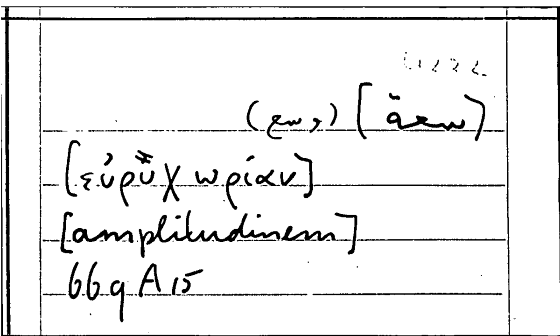 (وسع) [سعة]
[εὐρυχωρίαν]
[amplitudinem]
669 A 15